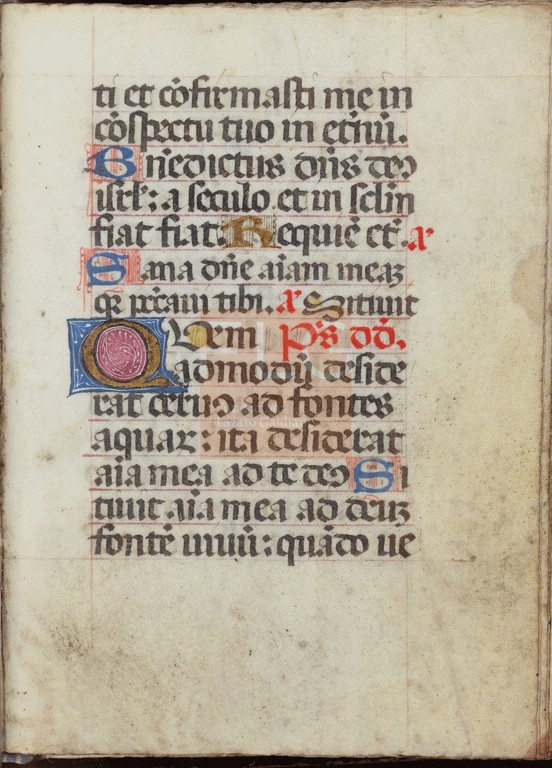 ti et cõfirmasti me in
cõspectu tuo in etñũ.
Bñedictus dñs deꝰ
isrl̃: a seculo et in sclm̃
fiat fiat. Requiẽ et̃. a͂
Sana dñe aĩam meaʒ
qꝛ peccaui tibi. a͂ Sitiuit
Uem p̃s dd̃.
Qadmodũ deside
rat ceruꝰ ad fontes
aquaꝝ: ita desiderat
aĩa mea ad te deꝰ Si
tiuit aĩa mea ad deuʒ
fontẽ uiuũ: quãdo ue